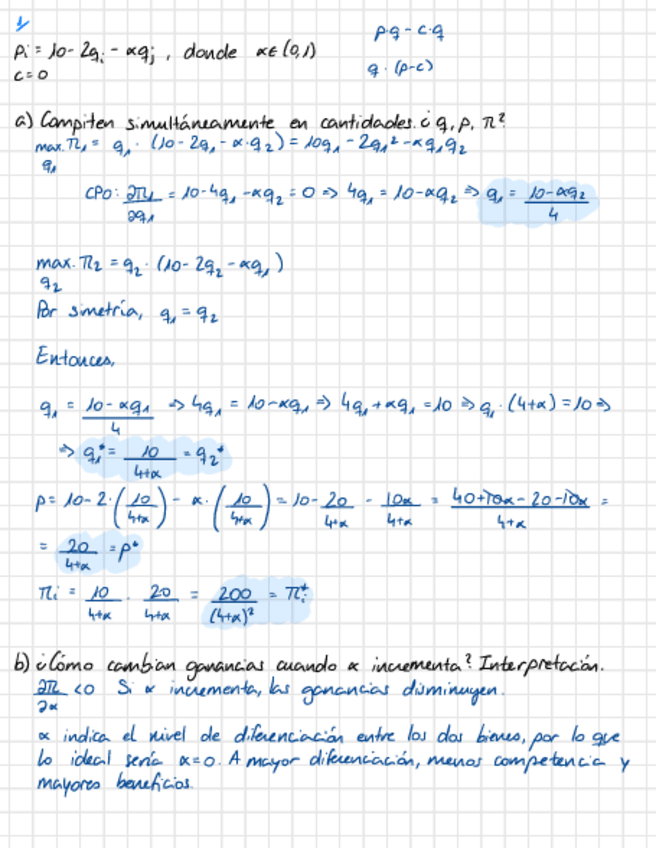 1/
Pi = 10 - 2qi - αqj , donde α∈(0,1)
c = 0
p·q - c·q
q·(p-c)
a) Compiten simultáneamente en cantidades. ¿q, p, π?
max. π1 = q1 · (10 - 2q1 - α·q2) = 10q1 - 2q1² - αq1q2
q1
CPO: ∂π1/∂q1 = 10 - 4q1 - αq2 = 0 ⇒ 4q1 = 10 - αq2 ⇒ q1 = (10 - αq2)/4
max. π2 = q2 · (10 - 2q2 - αq1)
q2
Por simetría, q1 = q2
Entonces,
q1 = (10 - αq1)/4 ⇒ 4q1 = 10 - αq1 ⇒ 4q1 + αq1 = 10 ⇒ q1·(4+α) = 10 ⇒
⇒ q1* = 10/(4+α) = q2*
p = 10 - 2·(10/(4+α)) - α·(10/(4+α)) = 10 - 20/(4+α) - 10α/(4+α) = (40 + 10α - 20 - 10α)/(4+α) =
= 20/(4+α) = p*
πi = 10/(4+α) · 20/(4+α) = 200/(4+α)² = πi*
b) ¿Cómo cambian ganancias cuando α incrementa? Interpretación.
∂π/∂α < 0 Si α incrementa, las ganancias disminuyen.
α indica el nivel de diferenciación entre los dos bienes, por lo que
lo ideal sería α=0. A mayor diferenciación, menos competencia y
mayores beneficios.